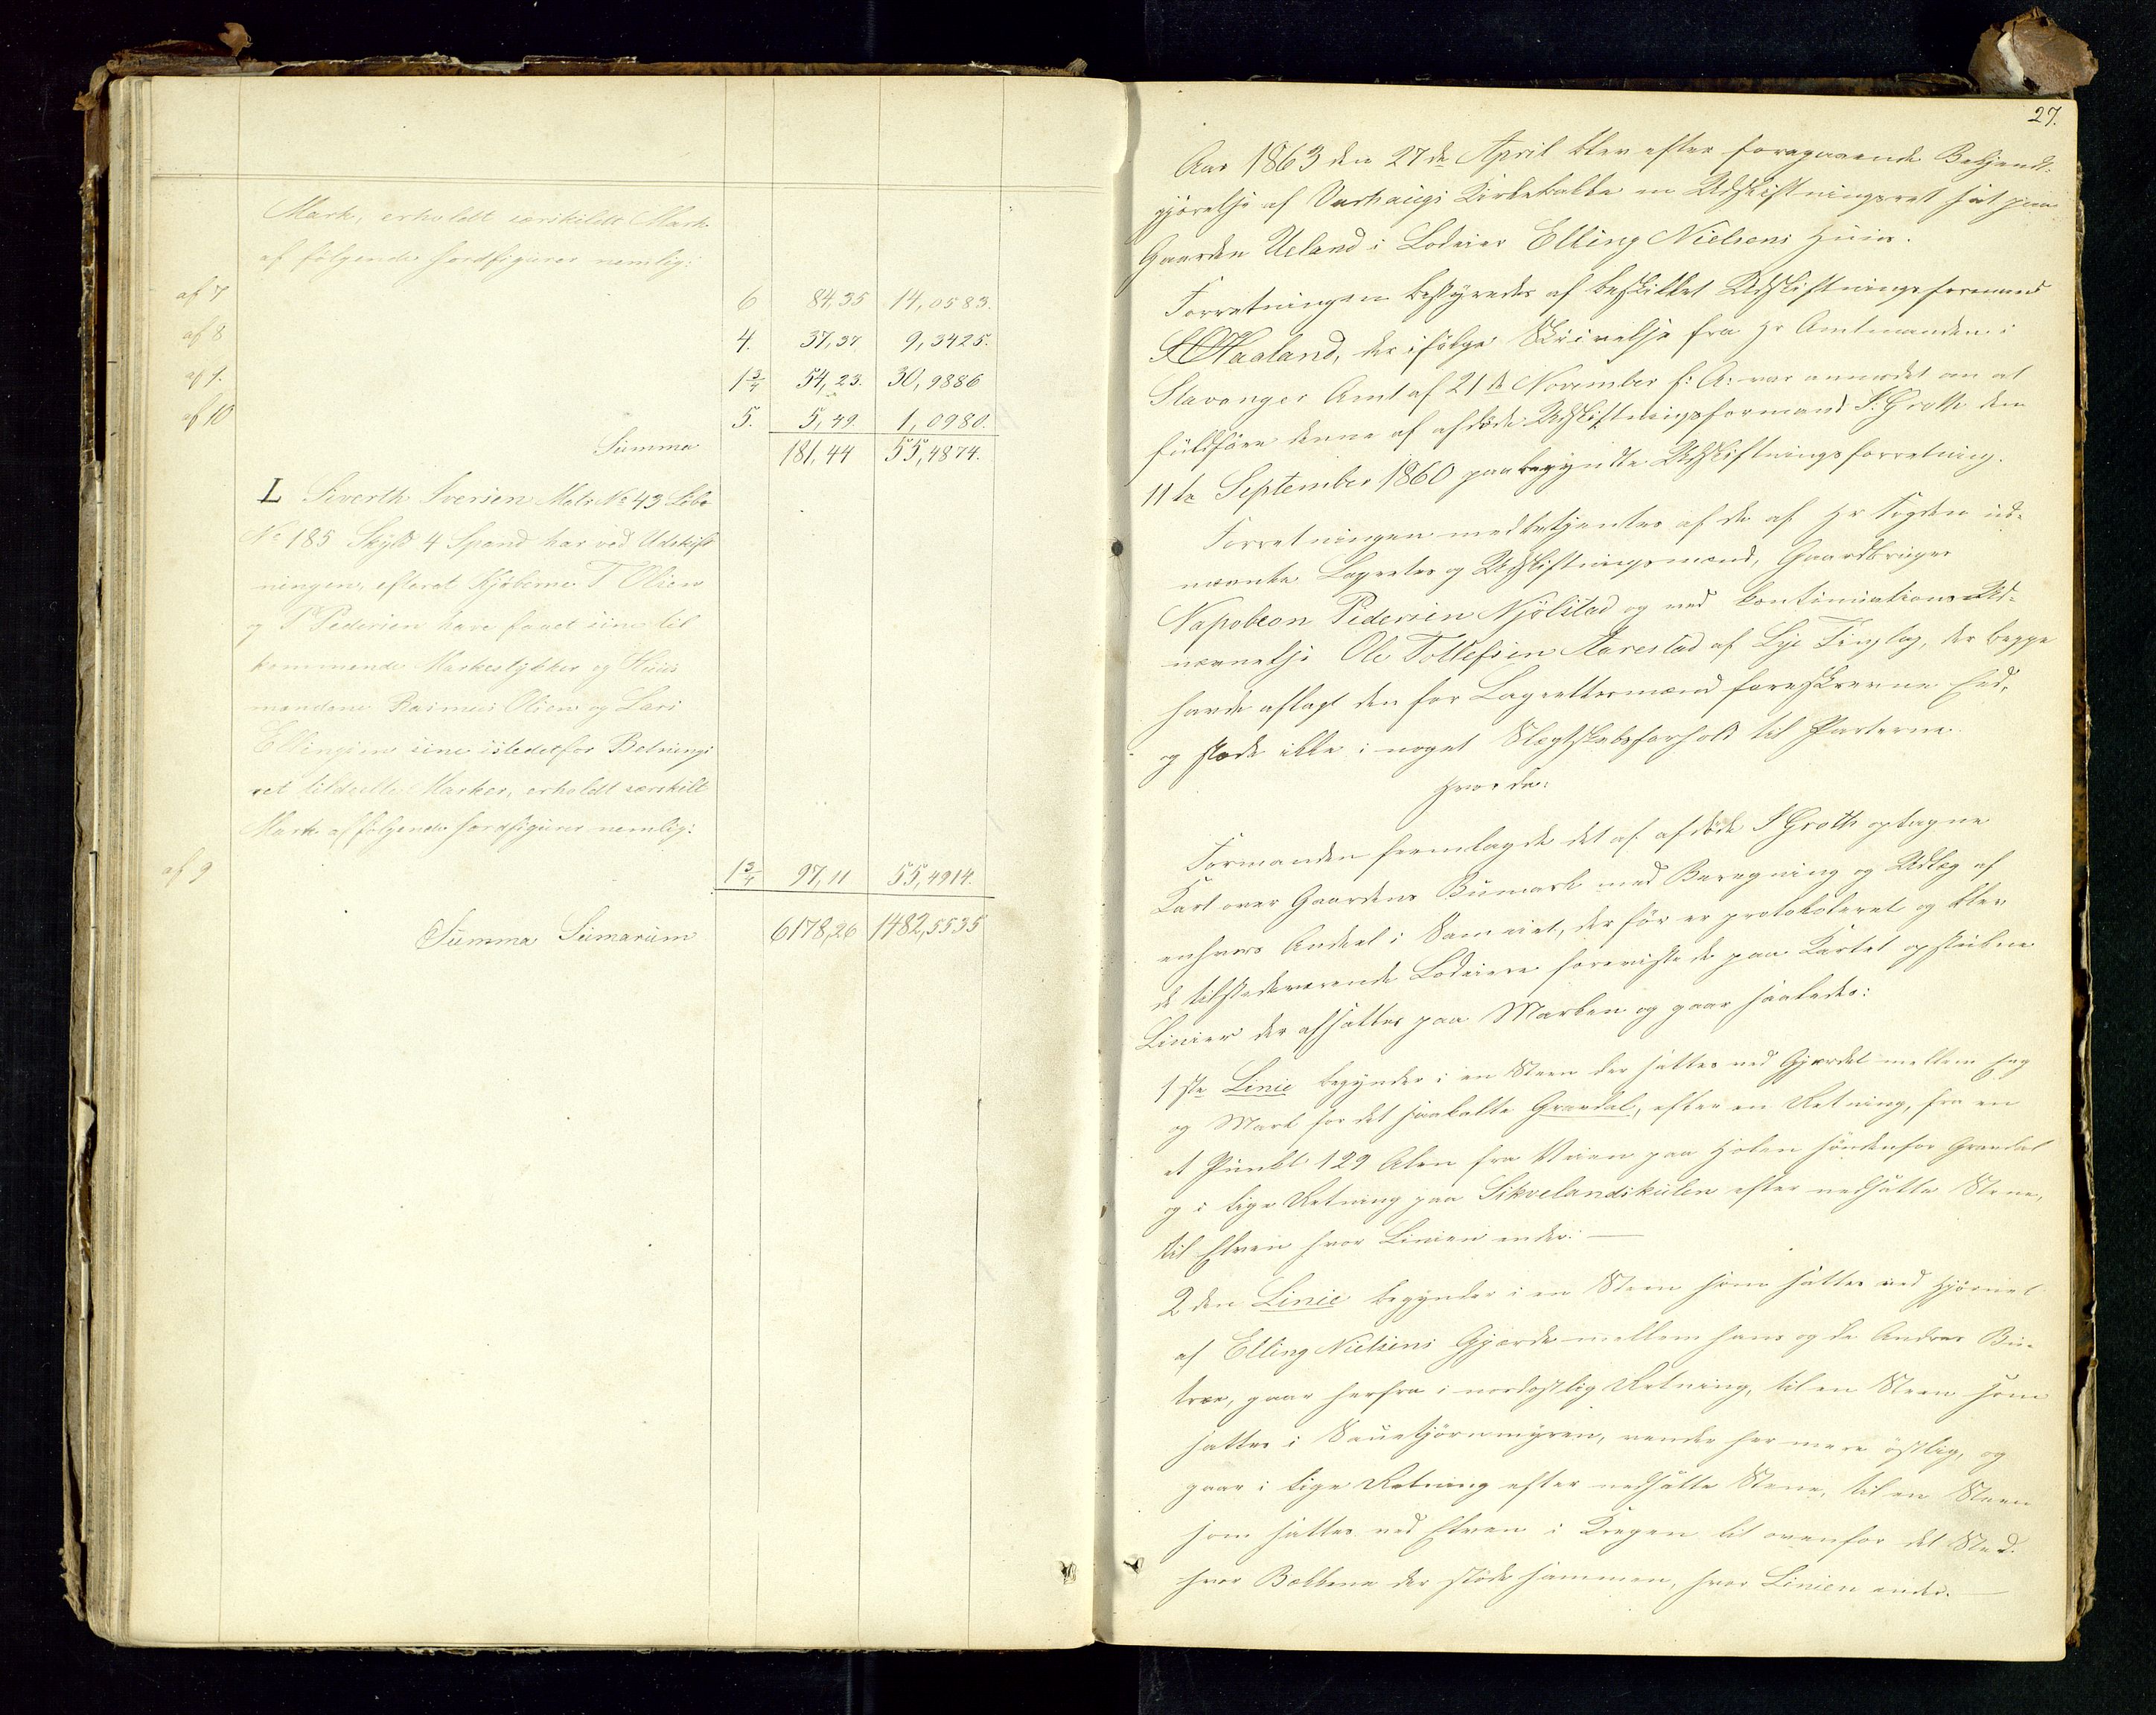 Mark, erholdt særskildt Mark
af følgende Jordfigurer nemlig:
af 7 6 84,35 14,0583.
af 8 4. 37,37 9,3425.
af 1. 1 3/4 54,23. 30,9886
af 10 5. 5,49. 1,0980.
Summa 181,44 55,4874.
L Siverth Iversen Matr No 43 Løbe
No 185 Skyld 4 Spand har ved Udskift
ningen, efterat Kjøberne T Olsen
og P Pedersen have faaet sine til
kommende Markestykker og Huus
mændene Rasmus Olsen og Lars
Ellingsen sine istedetfor Betnings
ret tildeelte Marker, erholdt særskilt
Mark af følgende Jordfigurer nemlig:
af 9 1 3/4 97,11 55,4914.
Summa Sumarum 6178,26 1482,5535
27.
Aar 1863 den 27de April blev efter foregaaende Bekjendt-
gjørelse af Varhaugs Kirkebakke en Udskiftningsret sat paa
Gaarden Ueland i Lodeier Elling Nielsens Huus.
Forretningen bestyredes af beskikket Udskiftningsformand
Haaland, der ifølge Skrivelse fra Hr Amtmanden i
Stavanger Amt af 21de November f: A: var anmodet om at
fuldføre denne af afdøde Udskiftningsformand S. Groth den
11te September 1860 paabegyndte Udskiftningsforretning.
Forretningen medbetjentes af de af Hr Fogden ud-
nævnte Lagrettes og Udskiftningsmænd, Gaardbruger
Napoleon Pedersen Njølstad og ved Continuations Ud-
nævnelse Ole Tollefsen Aarestad af Lye Tinglag, der begge
havde aflagt den for Lagrettesmænd foreskrevne Eed,
og stode ikke i noget Slægtskabsforhold til Parterne.
Hvorda:
Formanden fremlagde det af afdøde S Groth optagne
Kart over Gaardens Bumark med Beregning og Udlæg af
enhvers Andeel i Sameiet, der før er protokoleret og blev
de tilstedeværende Lodeiere foreviste de paa Kartet opstukne
Linier der afsættes paa Marken og gaar saaledes:
1ste Linie begynder i en Steen der sættes ved Gjærdet mellem Eng
og Mark for det saakalte Grøndal, efter en Retning, fra en
et Punkt 129 Alen fra Veien paa Holen søndenfor Grøndal
og i lige Retning paa Sikvelandskulen efter nedsatte Stene,
til Elven hvor Linien ender. —
2den Linie begynder i en Steen som sættes ved Hjørnet
af Elling Nielsens Gjærde mellem hans og de Andres Bu-
træ, gaar herfra i nordøstlig Retning, til en Steen som
sattes i Sauetjørnmyren, vender her mere østlig, og
gaar i lige Retning efter nedsatte Stene, til en Steen
som sættes ved Elven i Krogen lit ovenfor det Sted
hvor Bækkene der støde sammen, hvor Linien ender. —